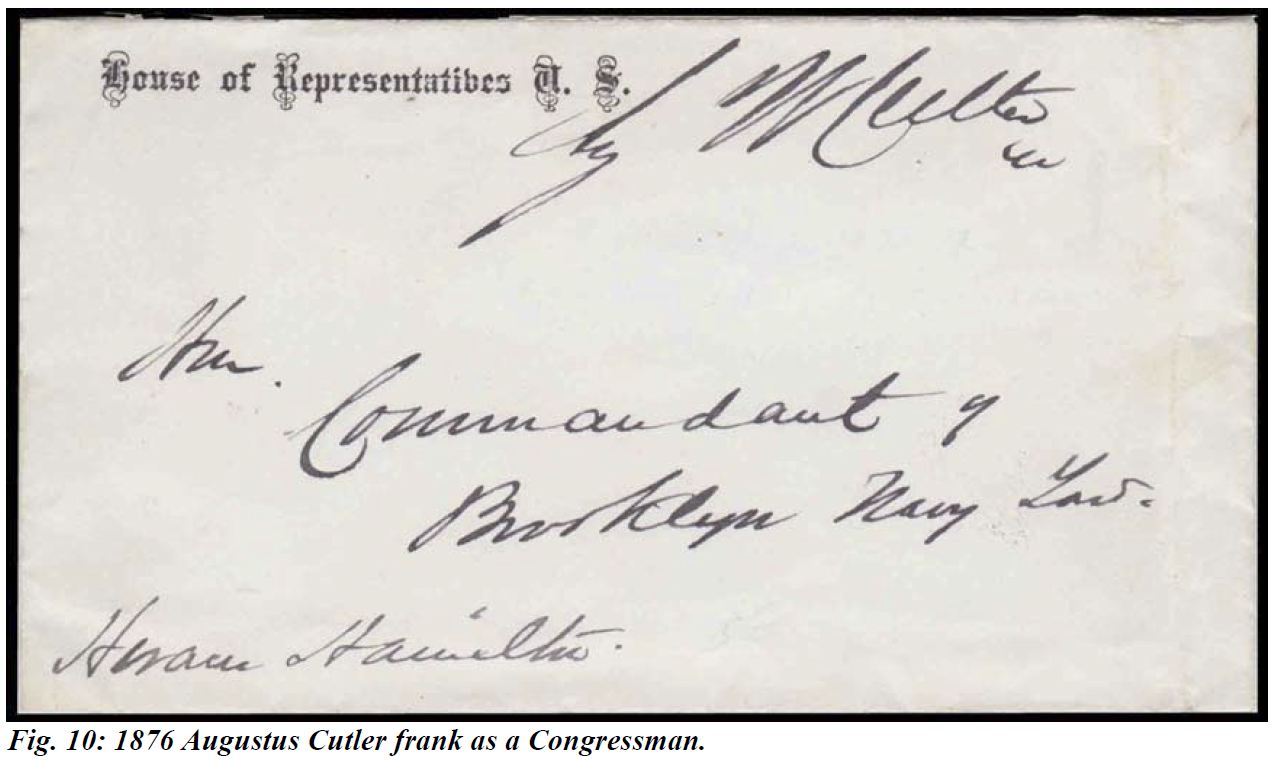 House of Representatives U. S.
Aug W Cutler
Hon.
Commandant of
Brooklyn Navy Yard
Hiram Hamilton.
Fig. 10: 1876 Augustus Cutler frank as a Congressman.